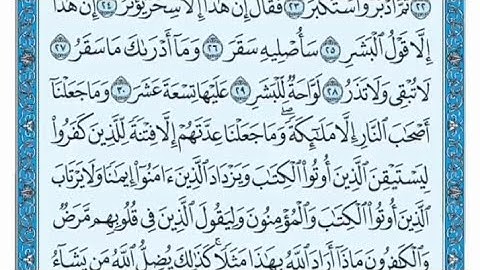 ٢٢ ثُمَّ أَدْبَرَ وَٱسْتَكْبَرَ ٢٣ فَقَالَ إِنْ هَٰذَآ إِلَّا سِحْرٌ يُؤْثَرُ ٢٤ إِنْ هَٰذَآ
إِلَّا قَوْلُ ٱلْبَشَرِ ٢٥ سَأُصْلِيهِ سَقَرَ ٢٦ وَمَآ أَدْرَىٰكَ مَا سَقَرُ ٢٧
لَا تُبْقِى وَلَا تَذَرُ ٢٨ لَوَّاحَةٌ لِّلْبَشَرِ ٢٩ عَلَيْهَا تِسْعَةَ عَشَرَ ٣٠ وَمَا جَعَلْنَآ
أَصْحَٰبَ ٱلنَّارِ إِلَّا مَلَٰٓئِكَةً ۙ وَمَا جَعَلْنَا عِدَّتَهُمْ إِلَّا فِتْنَةً لِّلَّذِينَ كَفَرُوا۟
لِيَسْتَيْقِنَ ٱلَّذِينَ أُوتُوا۟ ٱلْكِتَٰبَ وَيَزْدَادَ ٱلَّذِينَ ءَامَنُوٓا۟ إِيمَٰنًا وَلَا يَرْتَابَ
ٱلَّذِينَ أُوتُوا۟ ٱلْكِتَٰبَ وَٱلْمُؤْمِنُونَ وَلِيَقُولَ ٱلَّذِينَ فِى قُلُوبِهِم مَّرَضٌ
وَٱلْكَٰفِرُونَ مَاذَآ أَرَادَ ٱللَّهُ بِهَٰذَا مَثَلًا ۚ كَذَٰلِكَ يُضِلُّ ٱللَّهُ مَن يَشَآءُ